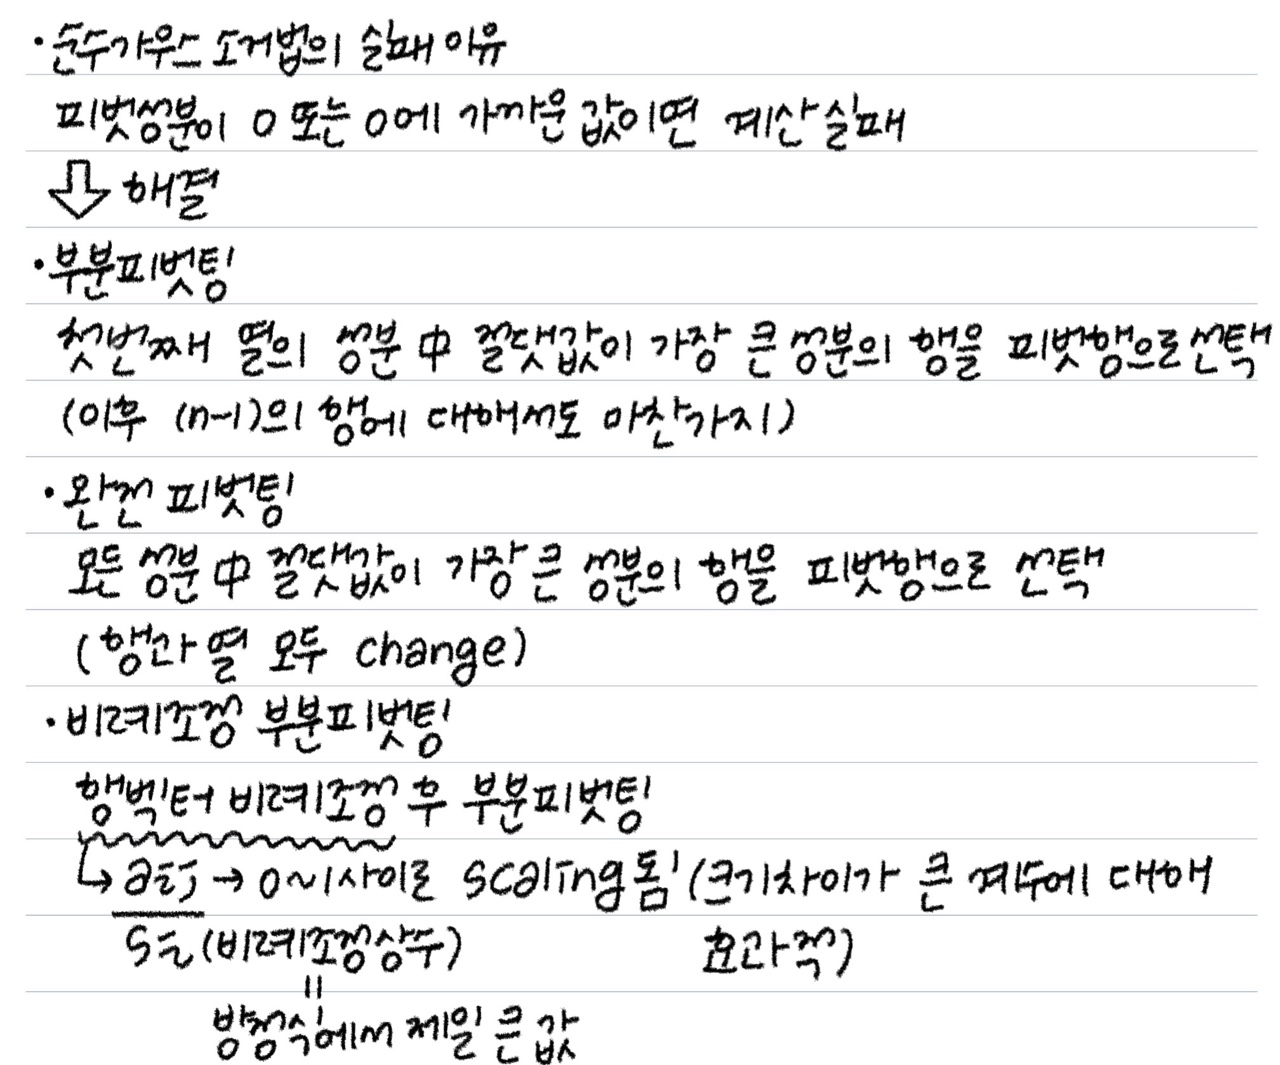 · 순수가우스 소거법의 실패 이유
피벗성분이 0 또는 0에 가까운 값이면 계산 실패
⇩ 해결
· 부분피벗팅
첫번째 열의 성분 中 절댓값이 가장 큰 성분의 행을 피벗행으로 선택
(이후 (n-1)의 행에 대해서도 마찬가지)
· 완전 피벗팅
모든 성분 中 절댓값이 가장 큰 성분의 행을 피벗행으로 선택
(행과 열 모두 change)
· 비례조정 부분피벗팅
행벡터 비례조정 후 부분피벗팅
↳ aij → 0~1사이로 scaling됨 (크기차이가 큰 계수에 대해
si (비례조정상수) 효과적)
=
방정식에서 제일 큰 값